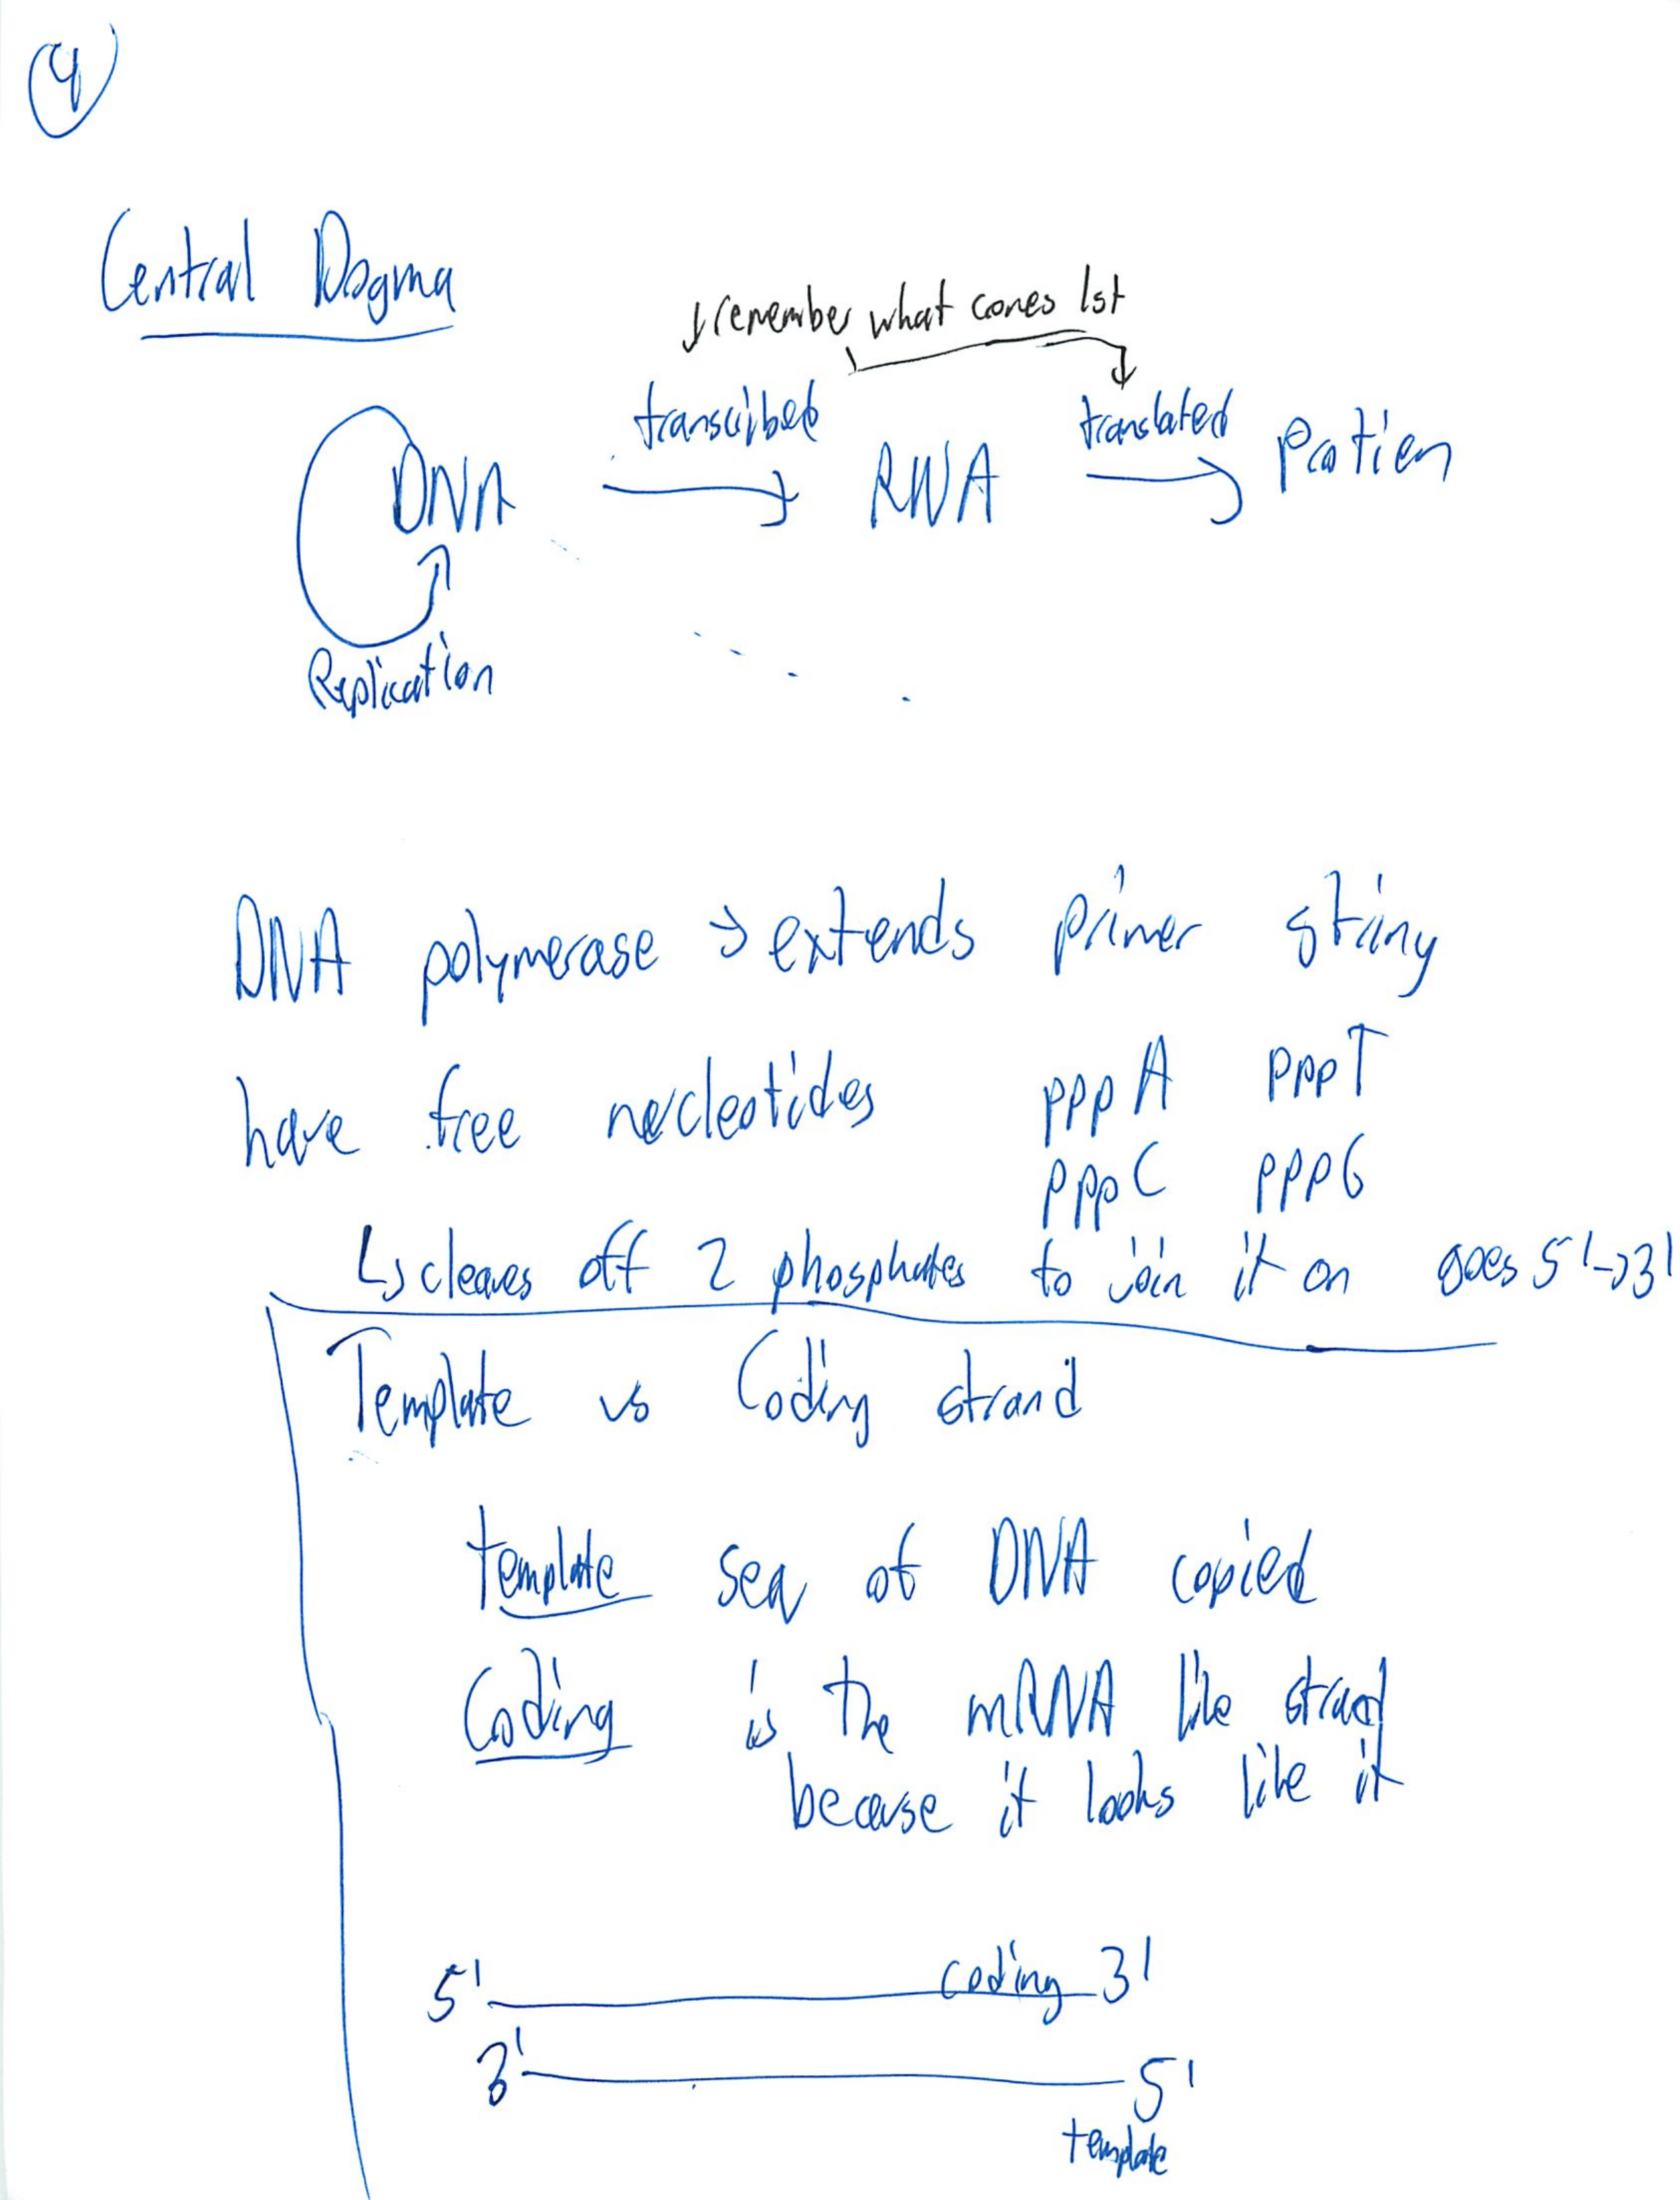 4
Central Dogma
remember what comes 1st
transcribed
translated
DNA → RNA → Protien
Replication
DNA polymerase → extends primer string
have free necleotides pppA pppT
pppC pppG
↳ cleaves off 2 phosphates to join it on goes 5'→3'
Template vs Coding strand
template seq of DNA copied
Coding is the mRNA like strad
becuse it looks like it
5' coding 3'
3' 5'
template